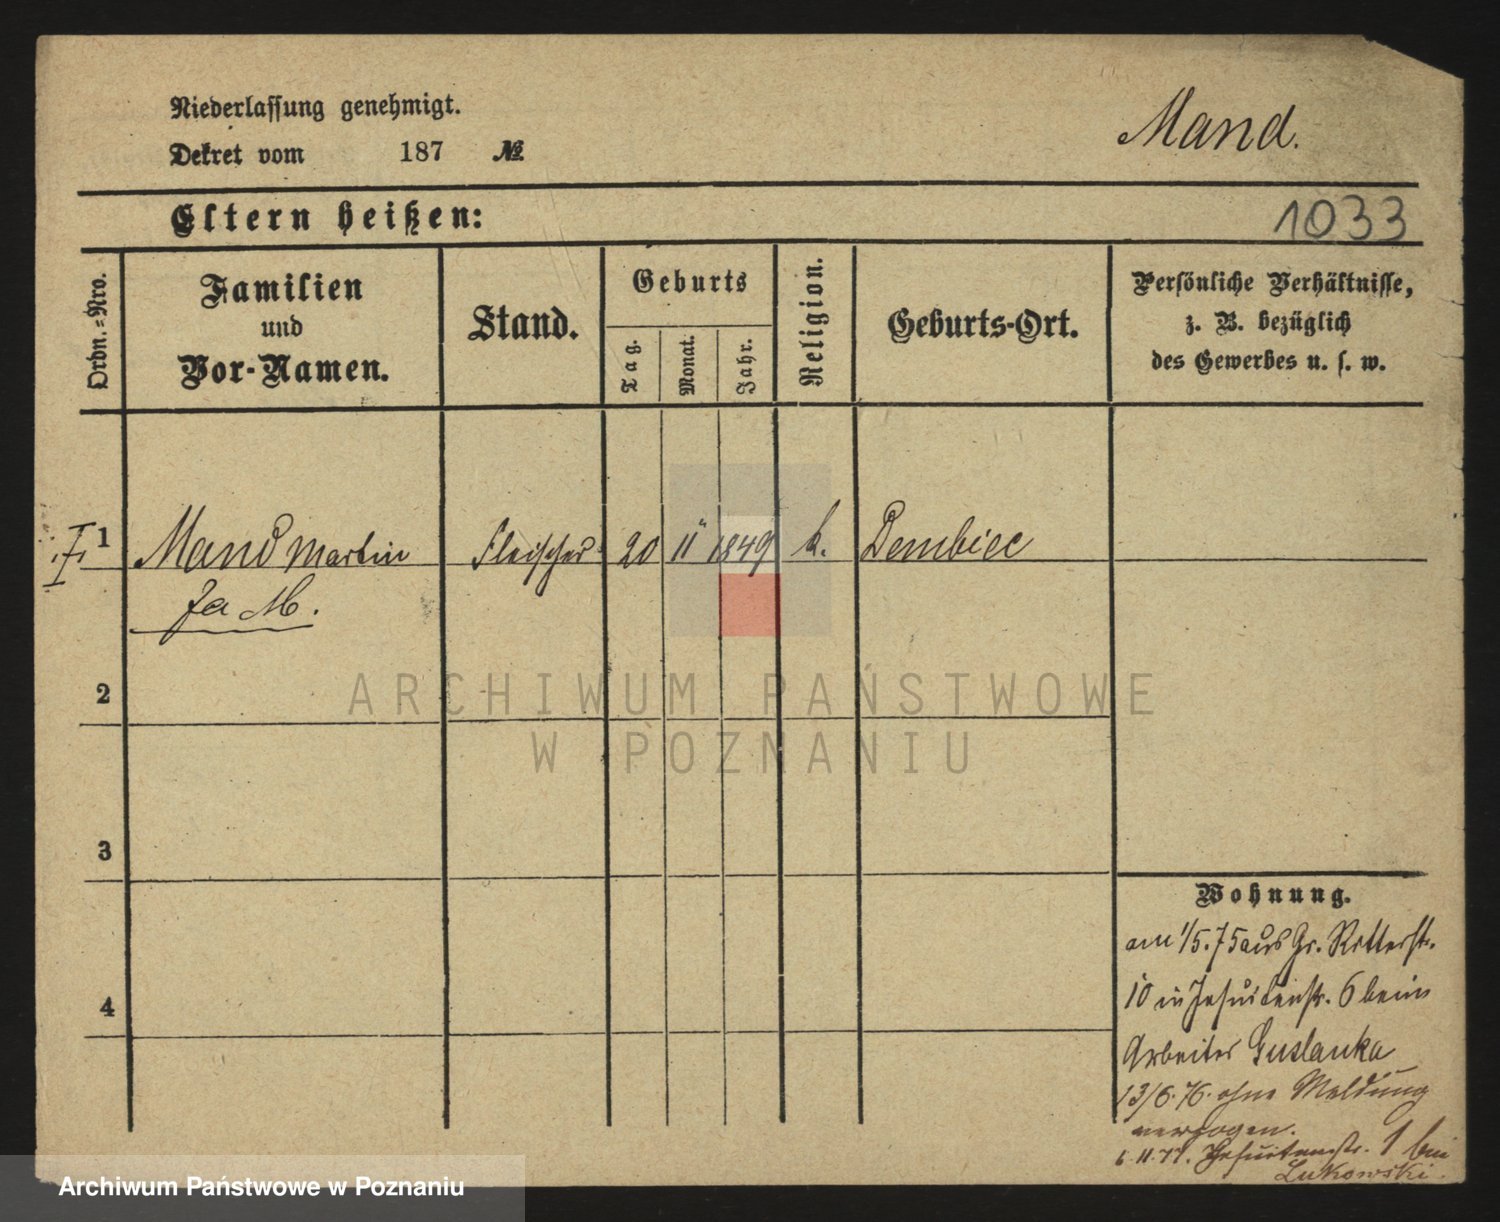 Niederlassung genehmigt.
Dekret vom 187 №
Mand.
Eltern heißen:
1033
Ordn.-Nro.
Familien
und
Vor-Namen.
Stand.
Geburts
Tag.
Monat.
Jahr.
Religion.
Geburts-Ort.
Persönliche Verhältnisse,
z. B. bezüglich
des Gewerbes u. s. w.
1 Mand Martin Fleischer 20 11 1849 k. Dembiec
2
3
4
Wohnung.
am 1/5.75 aus Gr. Ritterstr.
10 in Jesuitenstr. 6 beim
Arbeiter Guslanka
13/6.76. ohne Meldung
verzogen.
6.11.77. Jesuitenstr. 1 bei
Lukowski.
ARCHIWUM PAŃSTWOWE
W POZNANIU
Archiwum Państwowe w Poznaniu